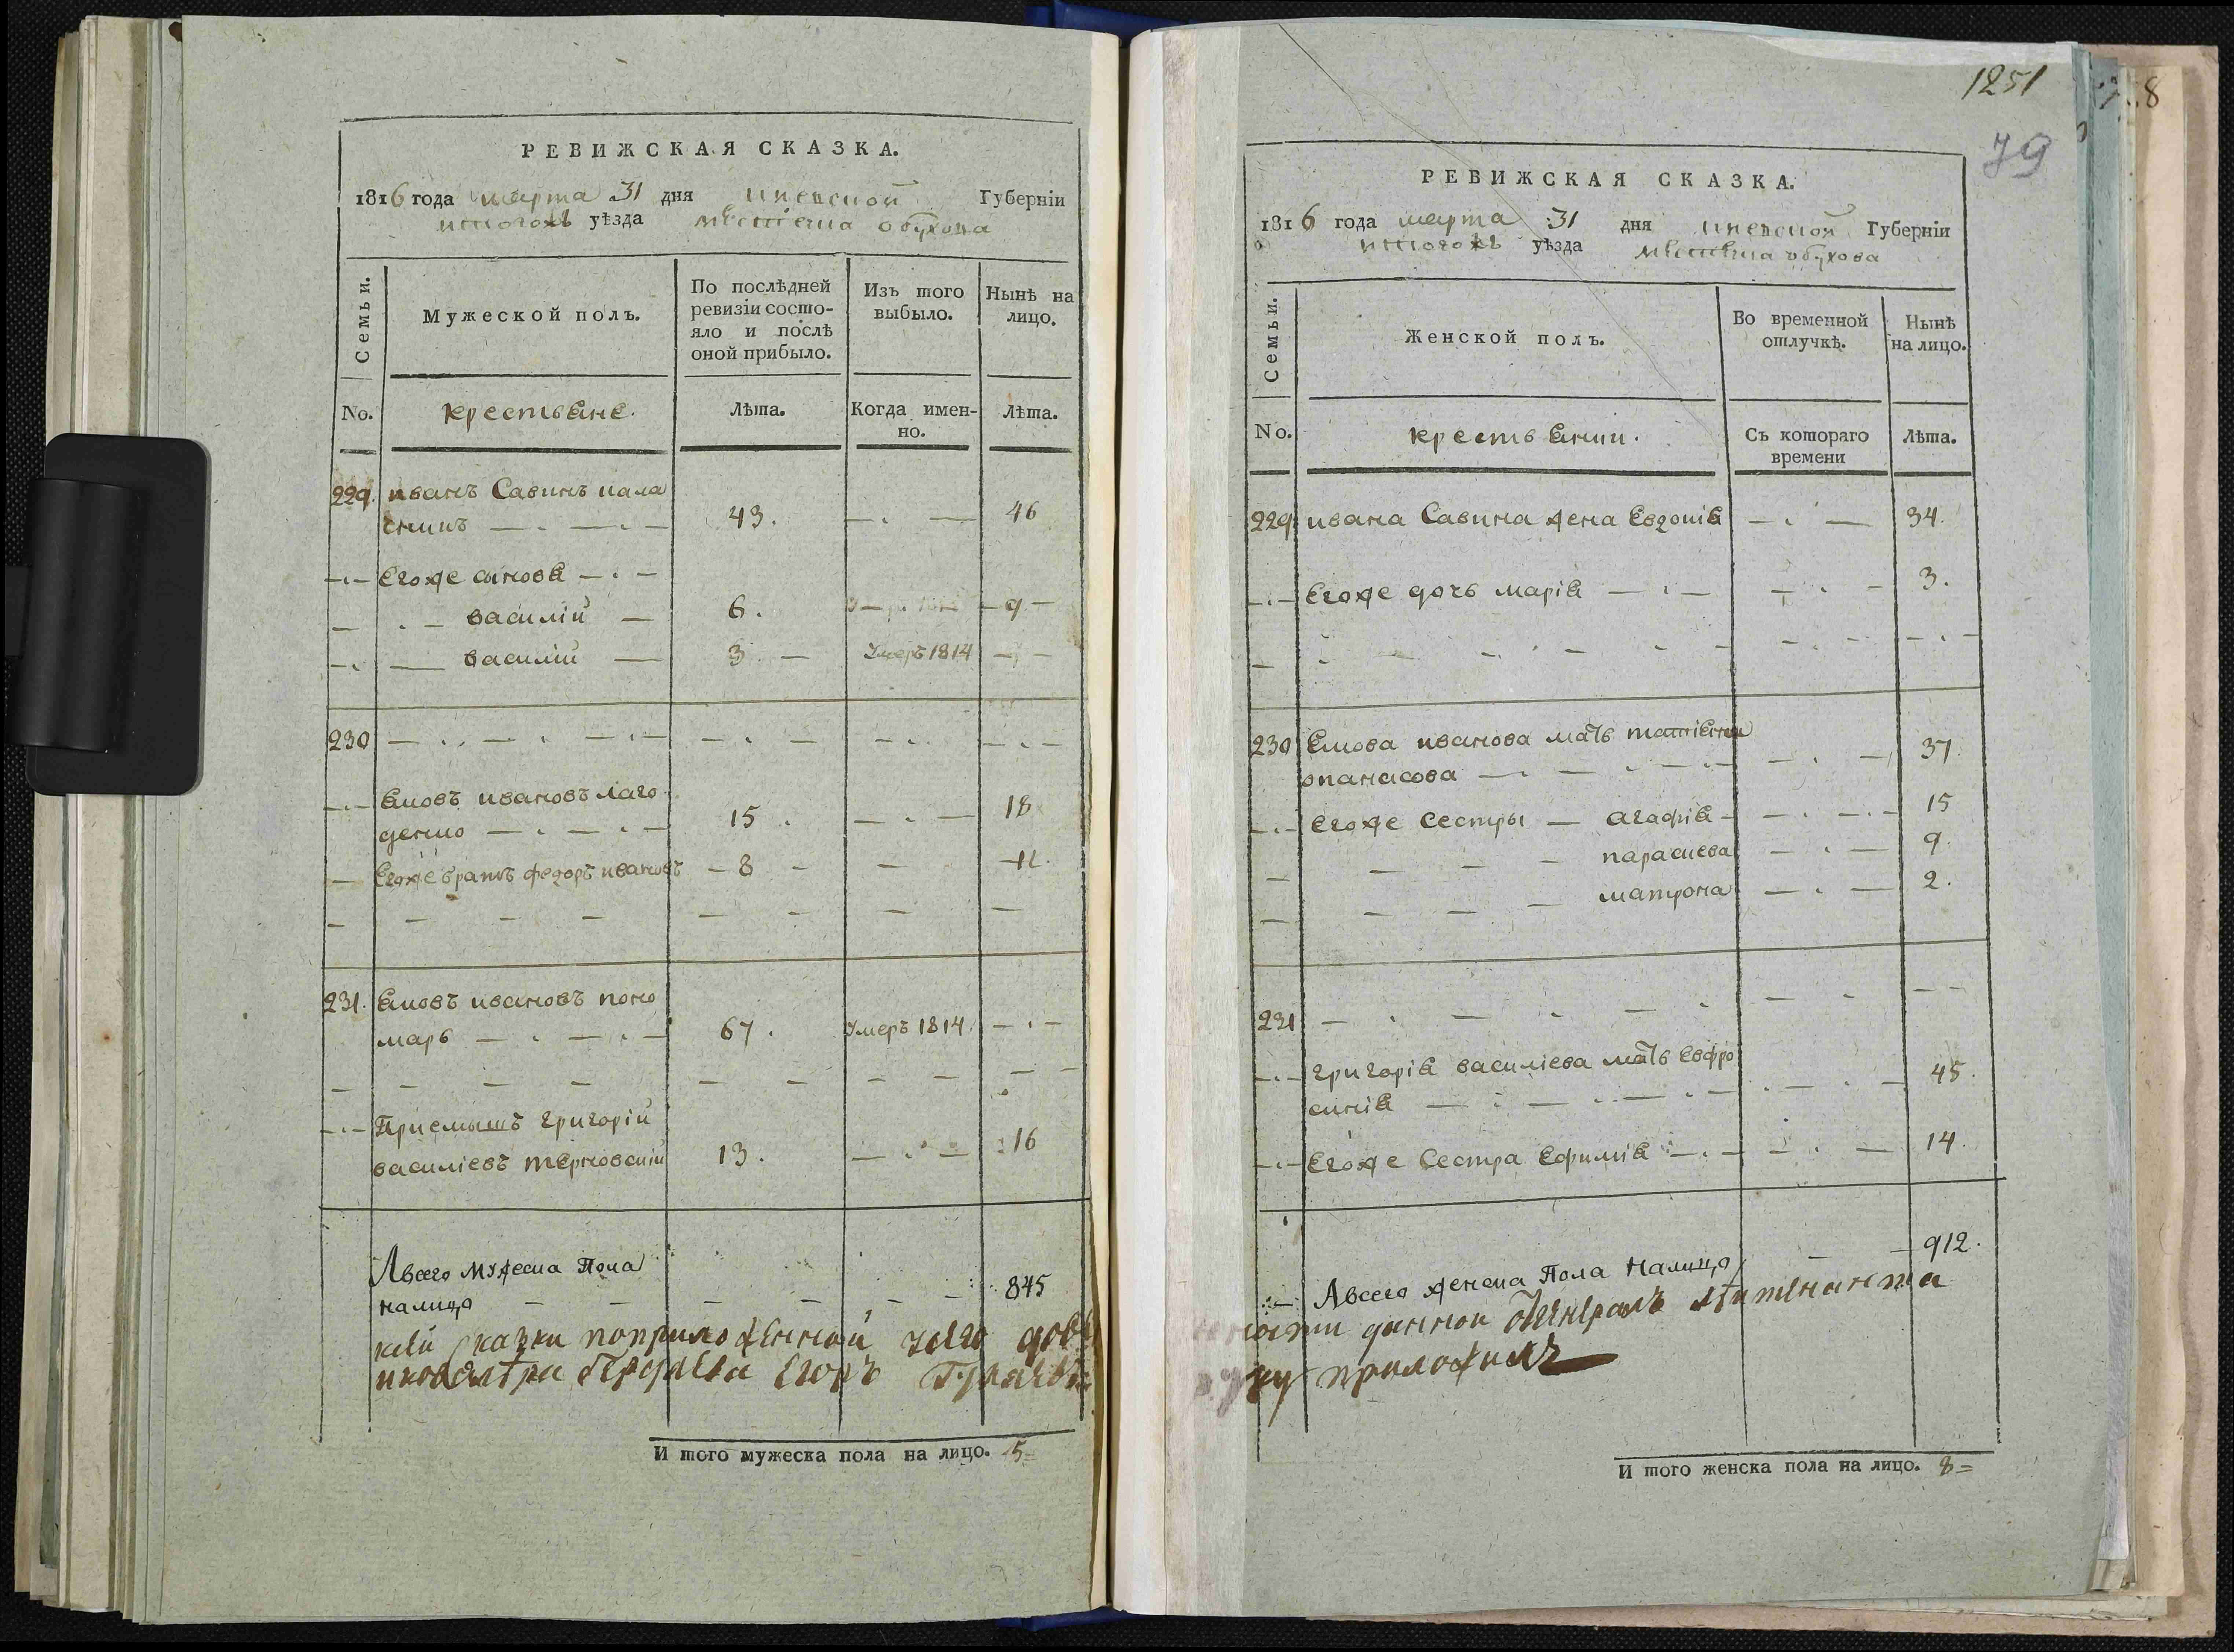 РЕВИЖСКАЯ СКАЗКА.
1816 года марта 31 дня киевской Губерніи
тогожъ уѣзда местечка обухова
Семьи.
Мужеской полъ.
По послѣдней ревизіи состо-
яло и послѣ
оной прибыло.
Изъ того
выбыло.
Нынѣ на
лицо.
No.
крестьяне.
Лѣта.
Когда имен-
но.
Лѣта.
229. иванъ Савинъ кала
43. 46
Егоже синовя
василій 6. 9
василій 3 Умеръ 1814
230
яковъ ивановъ лаго
денко 15 18
Егоже братъ федоръ ивановъ 8 11.
231. яковъ ивановъ поно
марь 67. Умеръ 1814
Приемышъ григорій
василіевъ терновскій 13. 16
Авсего мужеска Пола
налицо 845
сказки поприложенной
Егоръ
И того мужеска пола на лицо. 5=
1251
79
8
РЕВИЖСКАЯ СКАЗКА.
1816 года марта 31 дня киевской Губерніи
тогожъ уѣзда местечка обухова
Семьи.
Женской полъ.
Во временной
отлучкѣ.
Нынѣ
на лицо.
No.
крестьянки.
Съ котораго
времени
Лѣта.
229. ивана Савина жена Евдокія 34.
Егоже дочь марія 3.
230 якова иванова мать татіянна
опанасова 37.
Егоже Сестры агафія 15
параскева 9.
матрона 2.
231
григорія василіева мать Евфро
синія 45.
Егоже Сестра Ефимія 14.
Авсего женска Пола Налицо 912.
данной
руку приложилъ
И того женска пола на лицо. 8=